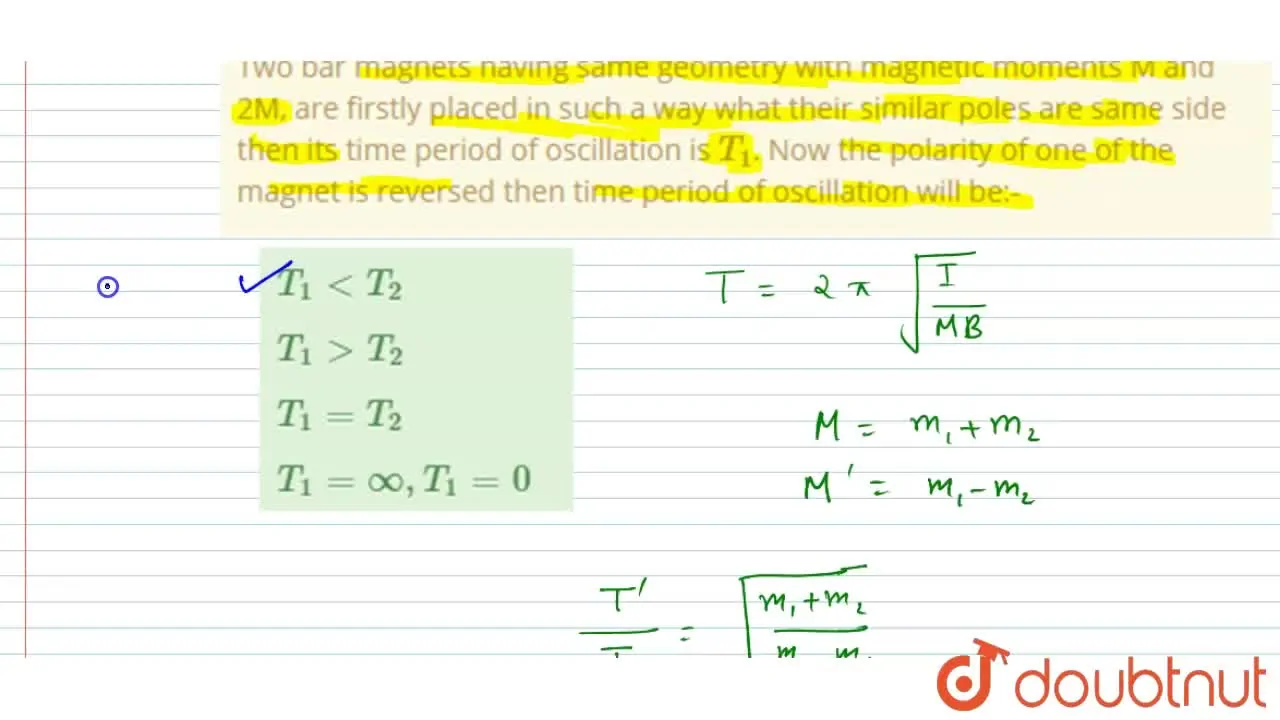 Two bar magnets having same geometry with magnetic moments M and
2M, are firstly placed in such a way what their similar poles are same side
then its time period of oscillation is T₁. Now the polarity of one of the
magnet is reversed then time period of oscillation will be:-
T₁ < T₂
T₁ > T₂
T₁ = T₂
T₁ = ∞, T₁ = 0
T = 2π √(I/MB)
M = m₁ + m₂
M' = m₁ - m₂
T'/T = √(m₁ + m₂/m₁ - m₂)
doubtnut